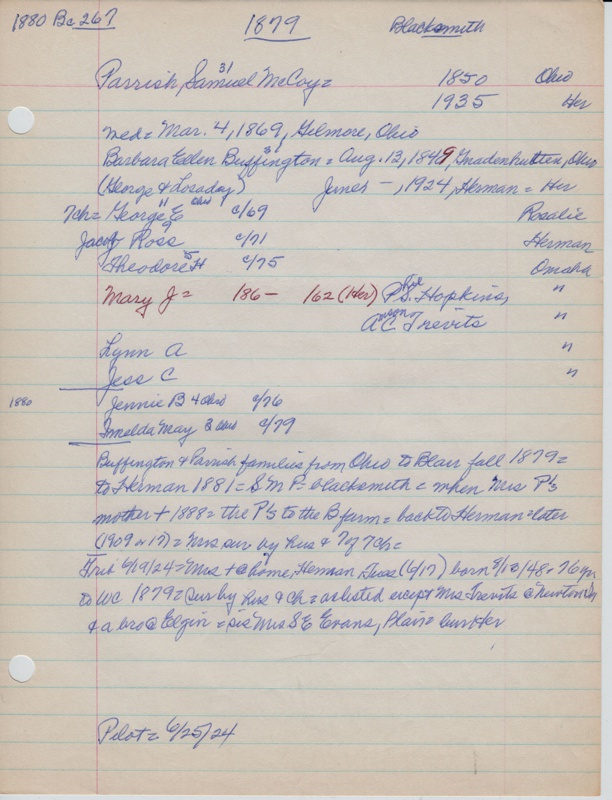 1880 Bc 267 1879 Blacksmith
31
Parrish, Samuel McCoy = 1850 Ohio
1935 Her
med = Mar. 4, 1869, Gilmore, Ohio
31
Barbara Ellen Buffington = Aug. 12, 1849, Gnadenhutten, Ohio
(George & Losaday) James -, 1924, Herman = Her
7ch = George E 11 Ohio c/69 Rosalie
Jacob Ross 9 c/71 Herman
Theodore H 5 c/75 Omaha
Mary J = 186- 162 (Her) P.S. Hopkins, "
A C Trevits "
Lynn A "
Jess C "
1880 Jennie B 4 Ohio c/76
Imelda May 8 Ohio c/79
Buffington & Parrish families from Ohio to Blair fall 1879 =
to Herman 1881 = S M P = blacksmith = when Mrs P's
mother + 1888 = the P's to the B farm = back to Herman = later
(1909 or 17) = Mrs sur by hus & 7 of 7ch =
Trib 6/19/24 = Mrs + @ home, Herman, Tues (6/17) born 8/12/48 = 76 yrs
to WC 1879 = sur by hus & ch = as listed except Mrs Trevits @ Newton
& a bro @ Elgin = sis Mrs S E Evans, Plain = bur Her
Pilot = 6/25/24